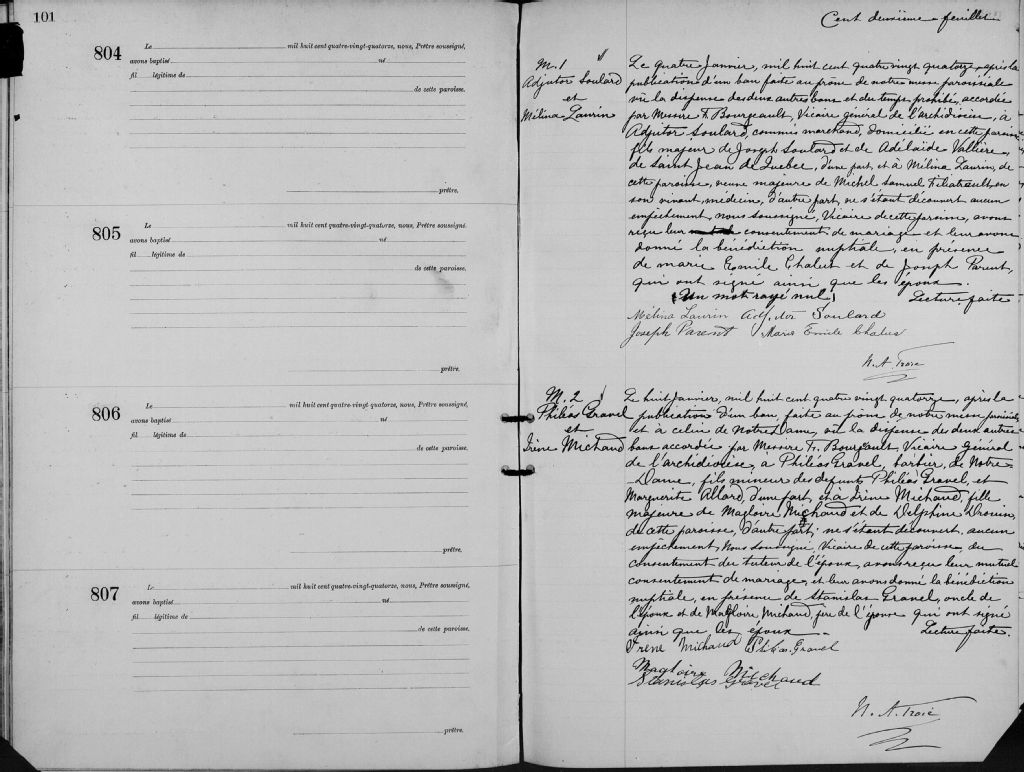 101
804
Le mil huit cent quatre-vingt-quatorze, nous, Prêtre soussigné,
avons baptisé né
fil légitime de
de cette paroisse.
prêtre.
805
Le mil huit cent quatre-vingt-quatorze, nous, Prêtre soussigné,
avons baptisé né
fil légitime de
de cette paroisse.
prêtre.
806
Le mil huit cent quatre-vingt-quatorze, nous, Prêtre soussigné,
avons baptisé né
fil légitime de
de cette paroisse.
prêtre.
807
Le mil huit cent quatre-vingt-quatorze, nous, Prêtre soussigné,
avons baptisé né
fil légitime de
de cette paroisse.
prêtre.
Cent deuxième feuillet
M. 1
Adjutor Soulard
et
Mélina Laurin
Le quatre Janvier, mil huit cent quatre vingt quatorze, après la
publication d'un ban faite au prône de notre messe paroissiale
vu la dispense des deux autres bans et du temps prohibé, accordée
par Messire F. Bourgeault, Vicaire général de l'archidiocèse, à
Adjutor Soulard, commis marchand, domicilié en cette paroisse
fils majeur de Joseph Soulard et de Adélaide Vallière,
de Saint Jean de Québec, d'une part, et à Mélina Laurin, de
cette paroisse, veuve majeure de Michel Samuel Filiatrault, en
son vivant, médecin, d'autre part, ne s'étant découvert aucun
empêchement, nous soussigné, Vicaire de cette paroisse, avons
reçu leur consentement de mariage et leur avons
donné la bénédiction nuptiale, en présence
de Marie Emile Chalus et de Joseph Parent,
qui ont signé ainsi que les époux.
(Un mot rayé nul) Lecture faite
Mélina Laurin Adjutor Soulard
Joseph Parent Marie Emile Chalus
N. A. Troie
M. 2
Philéas Gravel
et
Irène Michaud
Le huit Janvier, mil huit cent quatre vingt quatorze, après la
publication d'un ban, faite au prône de notre messe paroissiale
et à celui de Notre Dame, vu la dispense des deux autres
bans accordée par Messire F. Bourgeault, Vicaire Général
de l'archidiocèse, à Philéas Gravel, barbier, de Notre
Dame, fils mineur des défunts Philéas Gravel, et
Marguerite Allard, d'une part, et à Irène Michaud, fille
majeure de Magloire Michaud et de Delphine Drouin,
de cette paroisse, d'autre part; ne s'étant découvert aucun
empêchement, Nous soussigné, Vicaire de cette paroisse, du
consentement du tuteur de l'époux, avons reçu leur mutuel
consentement de mariage, et leur avons donné la bénédiction
nuptiale, en présence de Stanislas Gravel, oncle de
l'époux et de Magloire Michaud, père de l'épouse qui ont signé
ainsi que les époux. Lecture faite.
Irene Michaud Philéas Gravel
Magloire Michaud
Stanislas Gravel
N. A. Troie